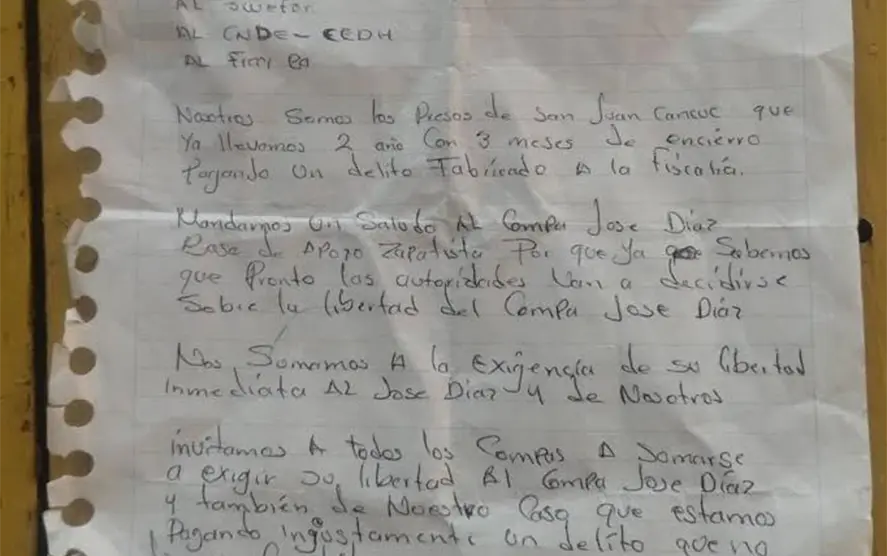 AL
AL CNDE - CEDH
AL
Nosotros Somos los Presos de San Juan Cancuc que
Ya llevamos 2 año con 3 meses de encierro
Pagando un delito Fabricado A la fiscalia.
Mandamos Un Saludo AL Compa Jose Díaz
Base de Apoyo Zapatista Por que Ya Sabemos
que Pronto las autoridades Van a decidirse
Sobre la libertad del Compa Jose Díaz
Nos Somamos A la Exigencia de su libertad
inmediata AL Jose Díaz y de Nosotros
invitamos A todos los Compas A Somarse
a exigir su libertad Al Compa Jose Díaz
y también de Nuestro Caso que estamos
Pagando Injustamente un delito que no